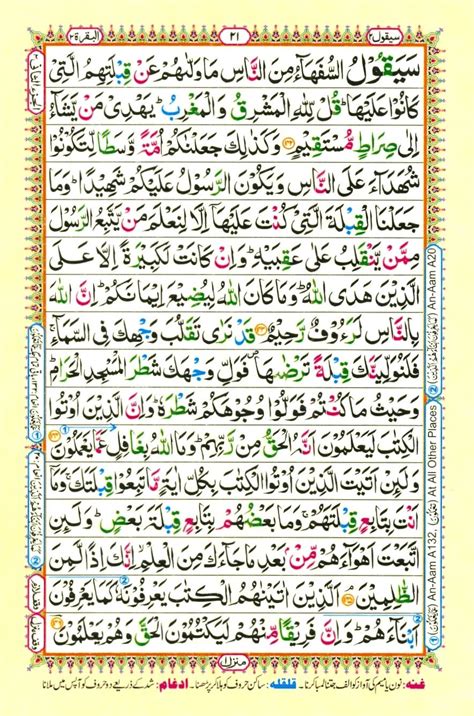 سيقول ٢
٢١
البقرة ٢
سَيَقُوْلُ السُّفَهَآءُ مِنَ النَّاسِ مَا وَلّٰىهُمْ عَنْ قِبْلَتِهِمُ الَّتِيْ
كَانُوْا عَلَيْهَا ؕ قُلْ لِّلّٰهِ الْمَشْرِقُ وَ الْمَغْرِبُ ؕ يَهْدِيْ مَنْ يَّشَآءُ
اِلٰى صِرَاطٍ مُّسْتَقِيْمٍ ﴿۱۴۲﴾ وَكَذٰلِكَ جَعَلْنٰكُمْ اُمَّةً وَّسَطًا لِّتَكُوْنُوْا
شُهَدَآءَ عَلَى النَّاسِ وَ يَكُوْنَ الرَّسُوْلُ عَلَيْكُمْ شَهِيْدًا ؕ وَمَا
جَعَلْنَا الْقِبْلَةَ الَّتِيْ كُنْتَ عَلَيْهَاۤ اِلَّا لِنَعْلَمَ مَنْ يَّتَّبِعُ الرَّسُوْلَ
مِمَّنْ يَّنْقَلِبُ عَلٰى عَقِبَيْهِ ؕ وَاِنْ كَانَتْ لَكَبِيْرَةً اِلَّا عَلَى
الَّذِيْنَ هَدَى اللّٰهُ ؕ وَمَا كَانَ اللّٰهُ لِيُضِيْعَ اِيْمَانَكُمْ ؕ اِنَّ اللّٰهَ
بِالنَّاسِ لَرَءُوْفٌ رَّحِيْمٌ ﴿۱۴۳﴾ قَدْ نَرٰى تَقَلُّبَ وَجْهِكَ فِي السَّمَآءِ ۚ
فَلَنُوَلِّيَنَّكَ قِبْلَةً تَرْضٰىهَا ۪ فَوَلِّ وَجْهَكَ شَطْرَ الْمَسْجِدِ الْحَرَامِ ؕ
وَحَيْثُ مَا كُنْتُمْ فَوَلُّوْا وُجُوْهَكُمْ شَطْرَهٗ ؕ وَاِنَّ الَّذِيْنَ اُوْتُوا
الْكِتٰبَ لَيَعْلَمُوْنَ اَنَّهُ الْحَقُّ مِنْ رَّبِّهِمْ ؕ وَمَا اللّٰهُ بِغَافِلٍ عَمَّا يَعْمَلُوْنَ ﴿۱۴۴﴾
وَلَئِنْ اَتَيْتَ الَّذِيْنَ اُوْتُوا الْكِتٰبَ بِكُلِّ اٰيَةٍ مَّا تَبِعُوْا قِبْلَتَكَ ۚ وَمَاۤ
اَنْتَ بِتَابِعٍ قِبْلَتَهُمْ ۚ وَمَا بَعْضُهُمْ بِتَابِعٍ قِبْلَةَ بَعْضٍ ؕ وَلَئِنِ
اتَّبَعْتَ اَهْوَآءَهُمْ مِّنْۢ بَعْدِ مَا جَآءَكَ مِنَ الْعِلْمِ ۙ اِنَّكَ اِذًا لَّمِنَ
الظّٰلِمِيْنَ ﴿۱۴۵﴾ اَلَّذِيْنَ اٰتَيْنٰهُمُ الْكِتٰبَ يَعْرِفُوْنَهٗ كَمَا يَعْرِفُوْنَ
اَبْنَآءَهُمْ ؕ وَاِنَّ فَرِيْقًا مِّنْهُمْ لَيَكْتُمُوْنَ الْحَقَّ وَهُمْ يَعْلَمُوْنَ ﴿۱۴۶﴾
منزل ١
غنه: نون یا میم کی آواز کو الف جتنا لمبا کرنا۔ قلقله: ساکن حروف کو ہلا کر پڑھنا۔ ادغام: شد کے ذریعے دو حروف کو آپس میں ملانا
An-Aam A132, At All Other Places
An-Aam A20